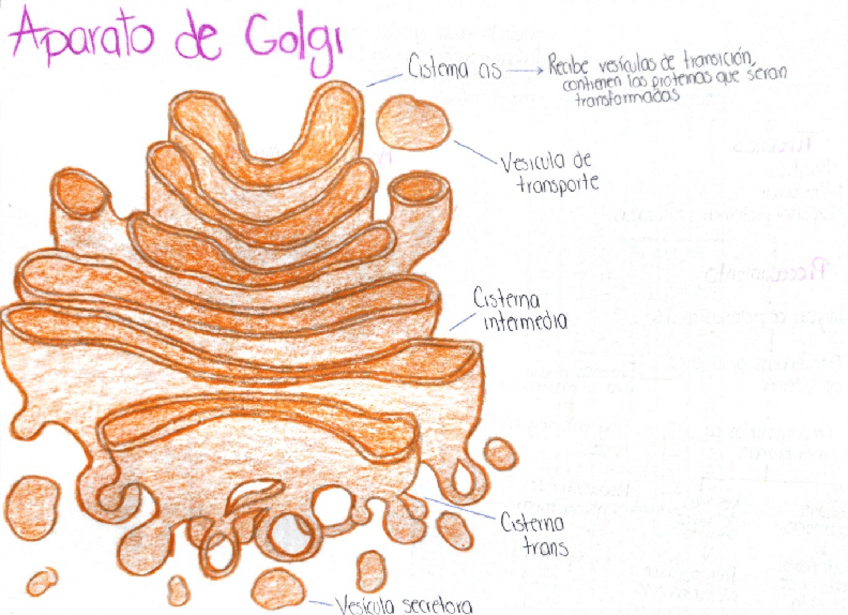 Aparato de Golgi
Cisterna cis → Recibe vesículas de transición,
contienen las proteínas que seran
transformadas
Vesícula de
transporte
Cisterna
intermedia
Cisterna
trans
Vesícula secretora